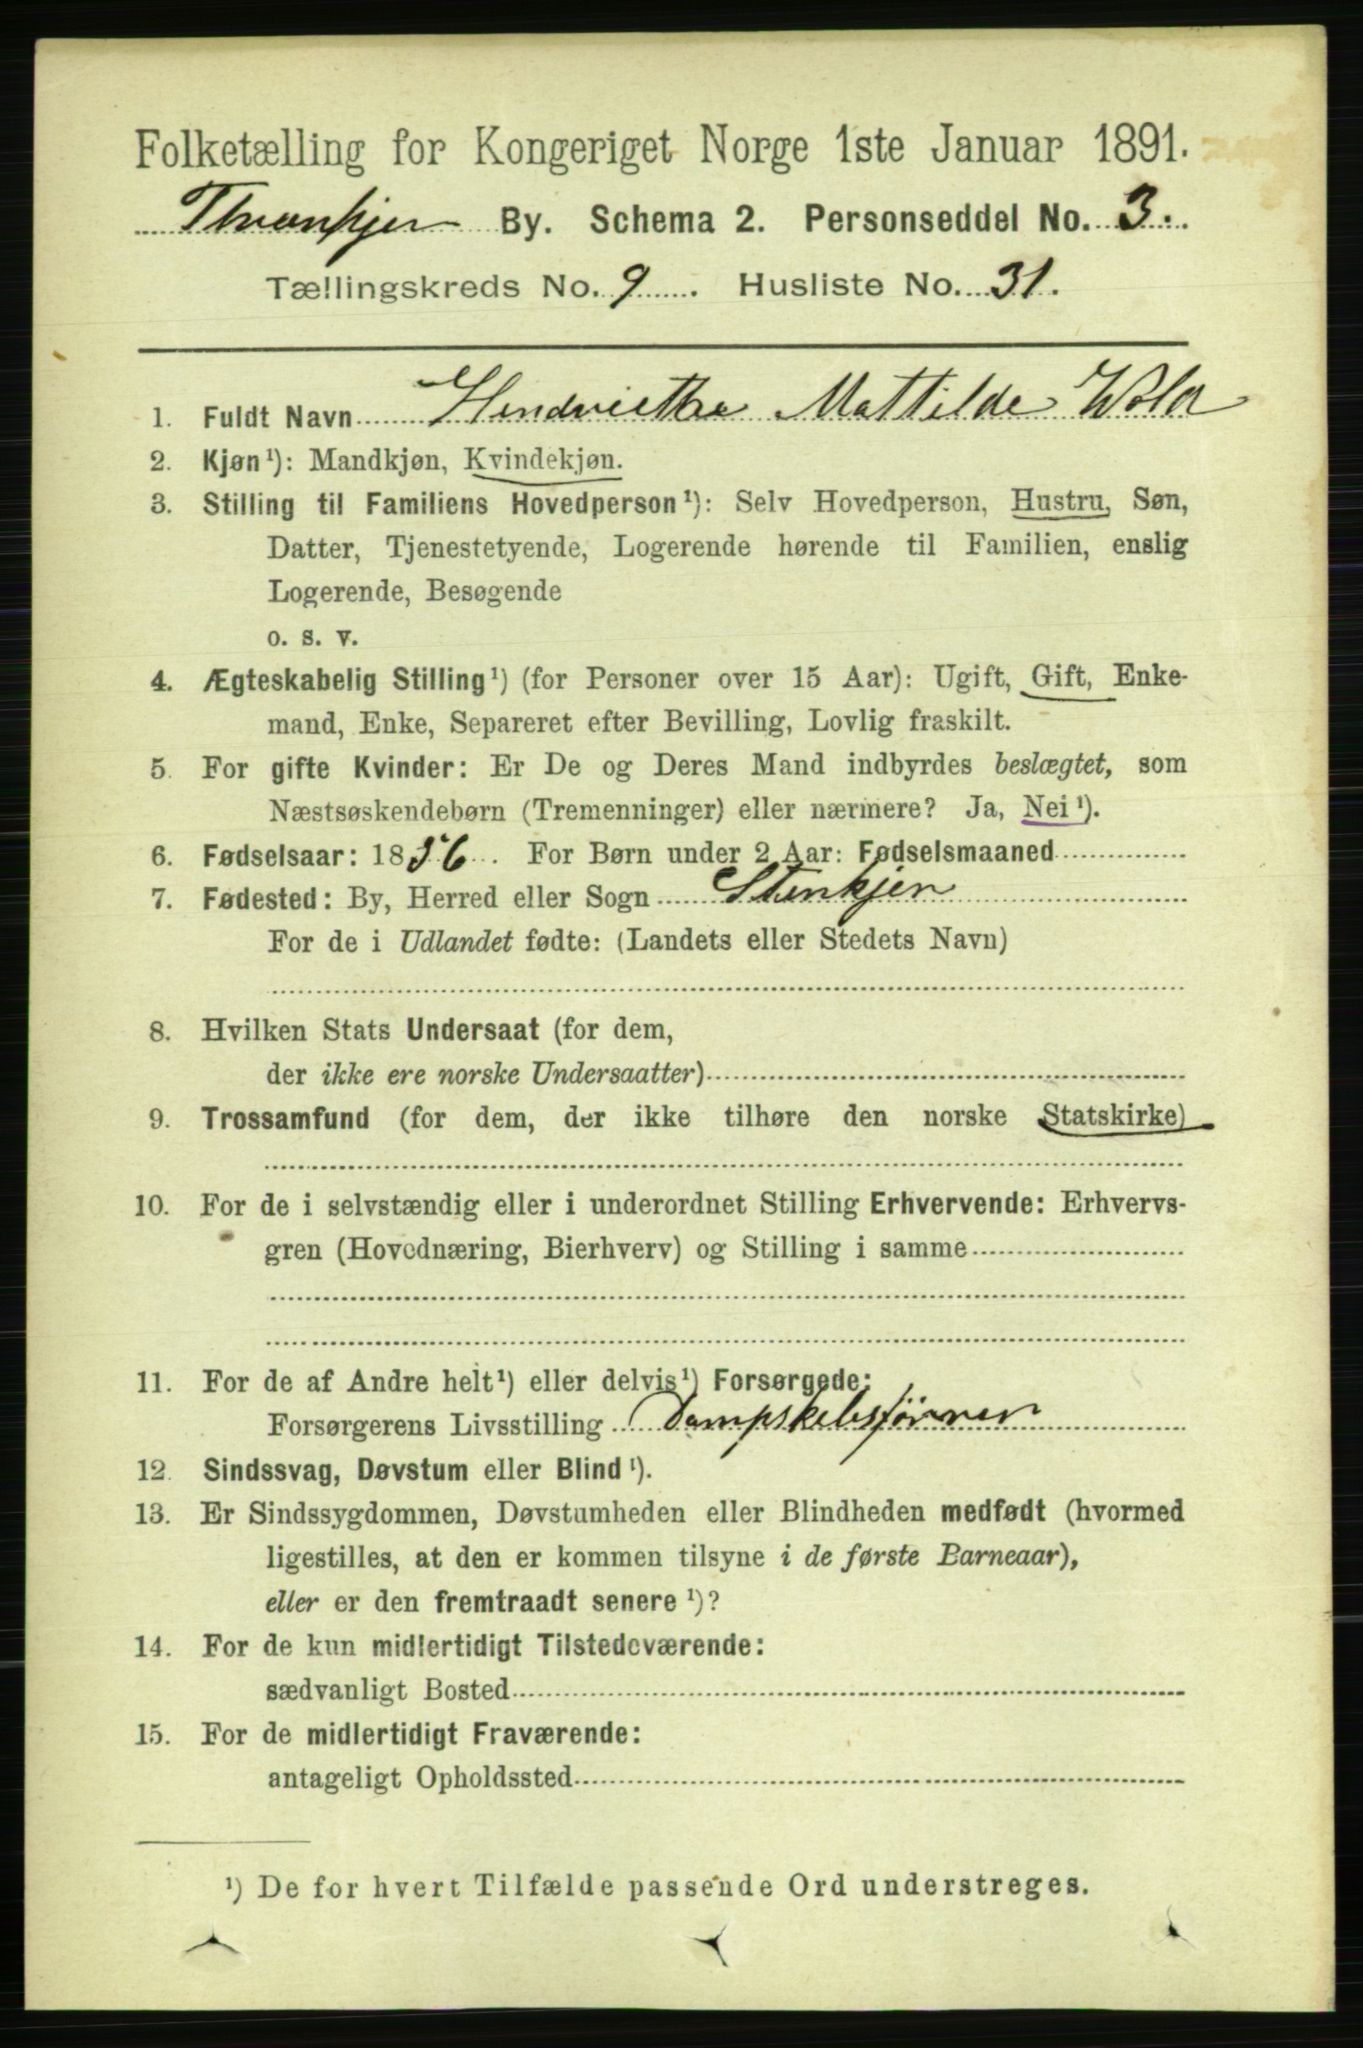 Folketælling for Kongeriget Norge 1ste Januar 1891.
By. Schema 2. Personseddel No. 3.
Tællingskreds No. 9. Husliste No. 31.
1. Fuldt Navn Hendriettha Mathilde Wold
2. Kjøn¹): Mandkjøn, Kvindekjøn.
3. Stilling til Familiens Hovedperson¹): Selv Hovedperson, Hustru, Søn,
Datter, Tjenestetyende, Logerende hørende til Familien, enslig
Logerende, Besøgende
o. s. v.
4. Ægteskabelig Stilling¹) (for Personer over 15 Aar): Ugift, Gift, Enke-
mand, Enke, Separeret efter Bevilling, Lovlig fraskilt.
5. For gifte Kvinder: Er De og Deres Mand indbyrdes beslægtet, som
Næstsøskendebørn (Tremenninger) eller nærmere? Ja, Nei¹).
6. Fødselsaar: 1856. For Børn under 2 Aar: Fødselsmaaned
7. Fødested: By, Herred eller Sogn Stenkjer
For de i Udlandet fødte: (Landets eller Stedets Navn)
8. Hvilken Stats Undersaat (for dem,
der ikke ere norske Undersaatter)
9. Trossamfund (for dem, der ikke tilhøre den norske Statskirke)
10. For de i selvstændig eller i underordnet Stilling Erhvervende: Erhvervs-
gren (Hovednæring, Bierhverv) og Stilling i samme
11. For de af Andre helt¹) eller delvis¹) Forsørgede:
Forsørgerens Livsstilling Dampskibsfører
12. Sindssvag, Døvstum eller Blind¹).
13. Er Sindssygdommen, Døvstumheden eller Blindheden medfødt (hvormed
ligestilles, at den er kommen tilsyne i de første Barneaar),
eller er den fremtraadt senere¹)?
14. For de kun midlertidigt Tilstedeværende:
sædvanligt Bosted
15. For de midlertidigt Fraværende:
antageligt Opholdssted
¹) De for hvert Tilfælde passende Ord understreges.